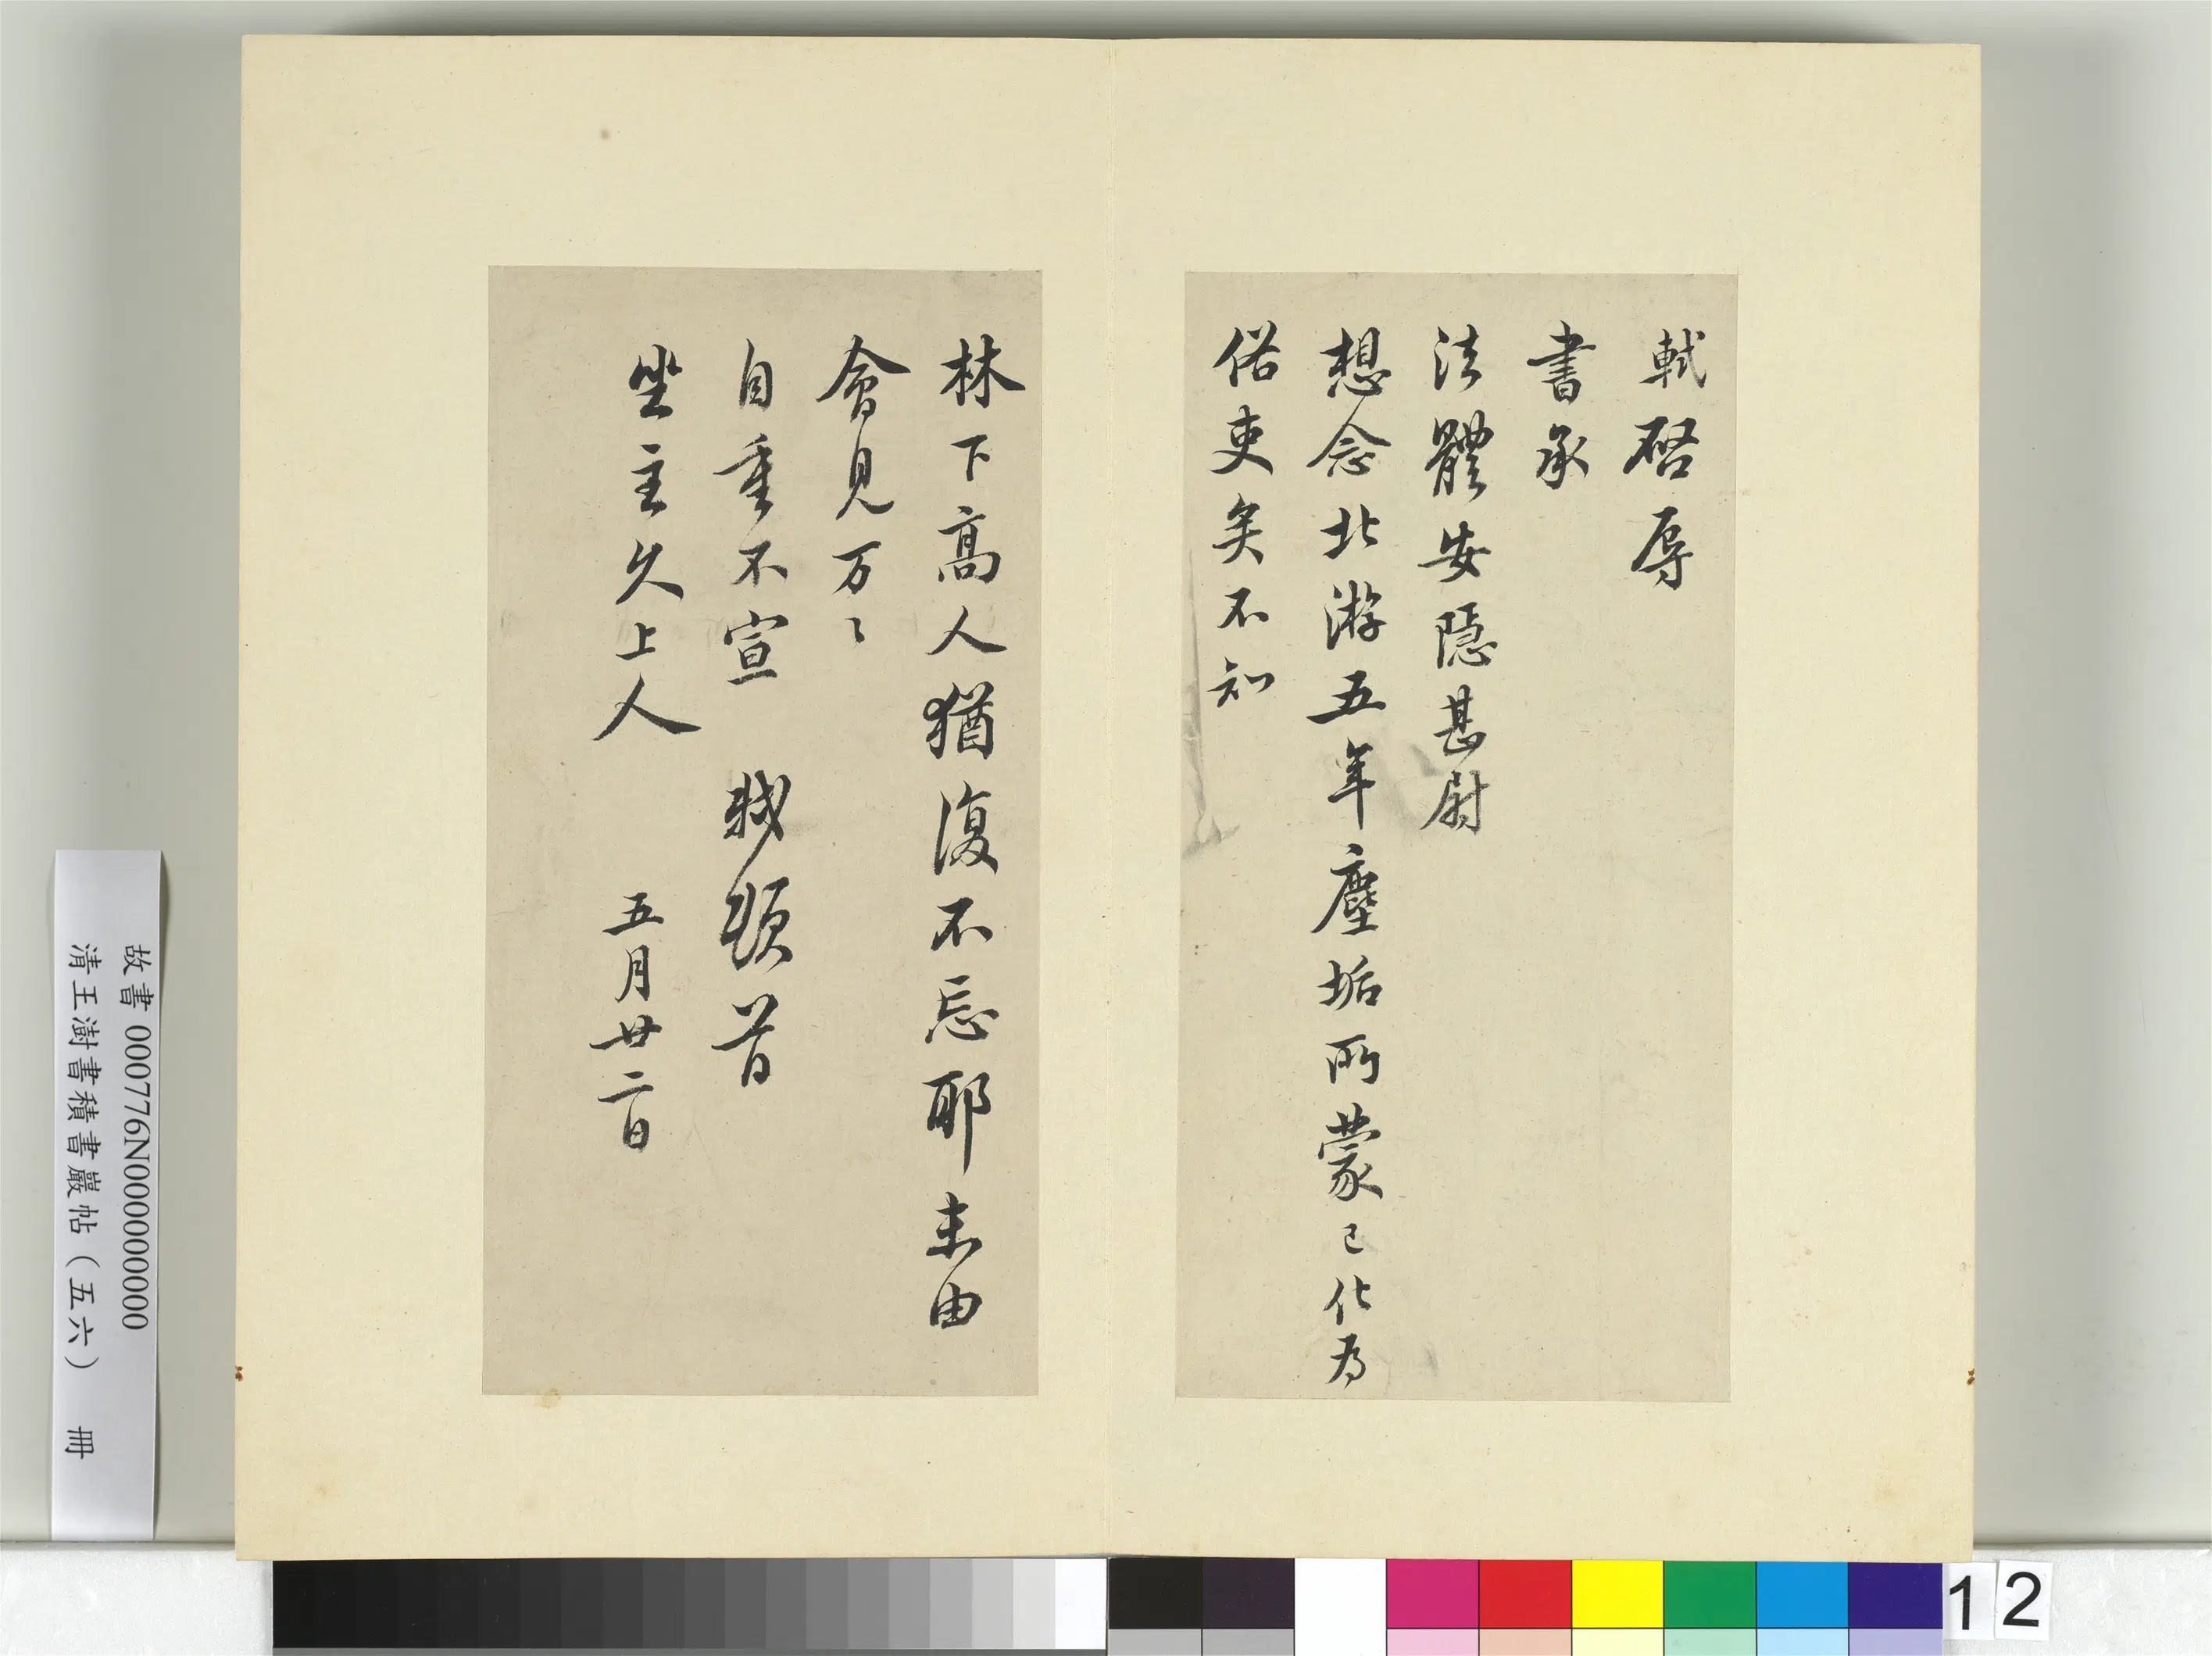 軾啓辱
書承
法體安隱甚尉
想念北游五年塵垢所蒙已化為
俗吏矣不知
林下高人猶復不忘耶未由
會見万〻
自重不宣 軾頓首
坐主久上人 五月廿二日
故書 000776N000000000
清王澍書積書巖帖（五六） 冊
12